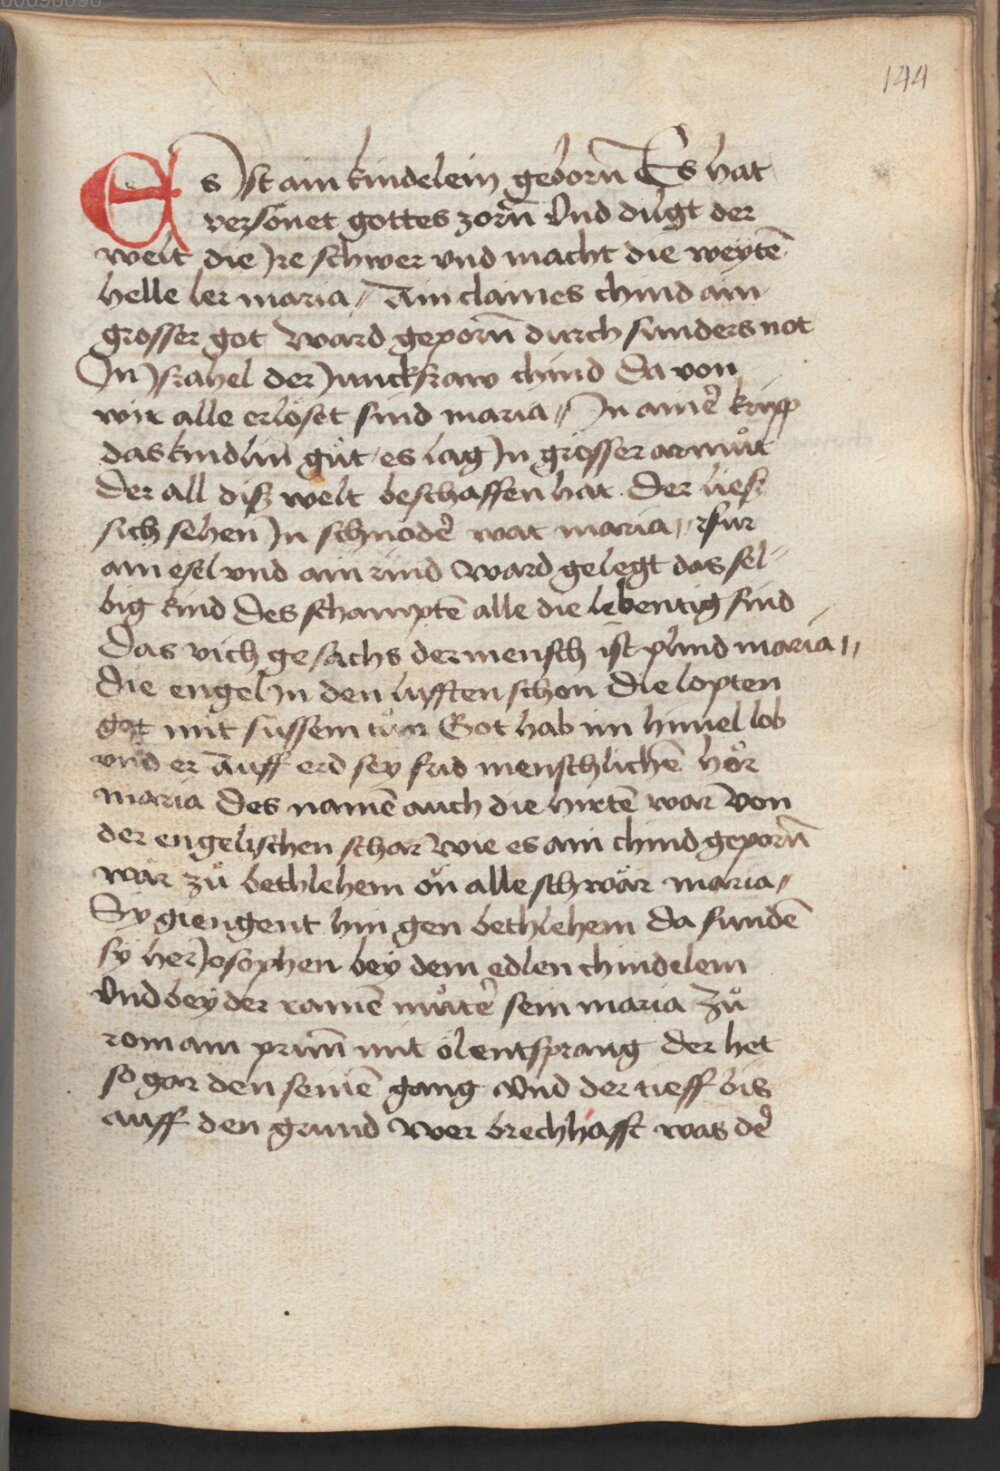 144
Es Ist ain kindelein geborn̄ Es hat
versönet gottes zorn̄ Vnd dugt der
welt die Jre schwer vnd macht die weytē
helle ler maria / Ain claines chind ain
grosser got Ward geporn̄ durch sunders not
In Jsrahel der Junckfraw chind Da von
wir alle erlöset sind maria // In ainer̄ kripp
das kindlin gůt es lag In grosser armůt
Der all disz welt beschaffen hat Der liesz
sich sehen In schnöder̄ wat maria // Fur
ain esel vnd ain rind Ward gelegt das sel-
big kind Des schampten̄ alle die lebentig sind
Das vich gesachs der mensch ist plind maria //
Die engel In den lufften schon Die lopten
got mit süssem ton Got hab im himel lob
vnd er Auff erd sey frid menschlichē hör
maria Des namē auch die hirtē war Von
der engelischen schar Wie es ain chind geporn̄
wär zů bethlehem on alle schwär maria /
Sy giengent hin gen bethlehem Da fundē
sy her Josophen bey dem edlen chindelein
Vnd bey der rainē můter̄ sein maria Zů
rom ain prunn̄ mit öl entsprang Der het
so gar den seinē gang Vnd der tieff bis
auff den grund Wer brechhafft was der̄